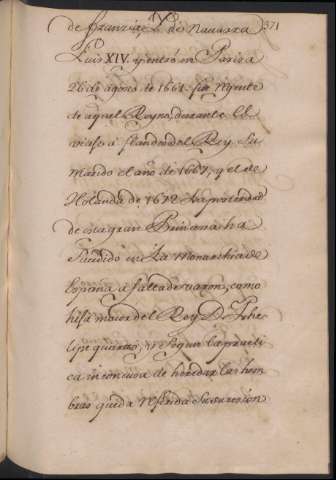 de francia, y de Navarra 371
Luis XIV. y entró en Paris a
26 de agosto de 1661. fue Rejente
de aquel Reyno, durante el
viaje a flandes del Rey su
marido el año de 1667, y el de
Holanda de 1672. La posteridad
de esta gran Prinçesa ha
suçedido en la Monarchia de
España a falta de varon, como
hija maior del Rey Dn. Phe
lipe quarto, y segun la practi
ca inconcusa de heredar las hem
bras queda referida su sucession